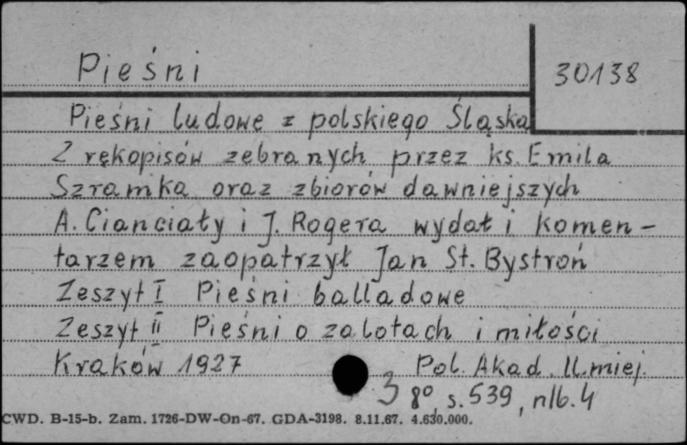 Pieśni
30138
Pieśni ludowe z polskiego Śląska
Z rękopisów zebranych przez ks. Emila
Szramka oraz zbiorów dawniejszych
A. Cianciały i J. Rogera wydał i komen-
tarzem zaopatrzył Jan St. Bystroń
Zeszyt I Pieśni balladowe
Zeszyt II Pieśni o zalotach i miłości
Kraków 1927 Pol. Akad. Umiej.
3 8°, s. 539, nlb. 4
CWD. B-15-b. Zam. 1726-DW-On-67. GDA-3198. 8.11.67. 4.630.000.